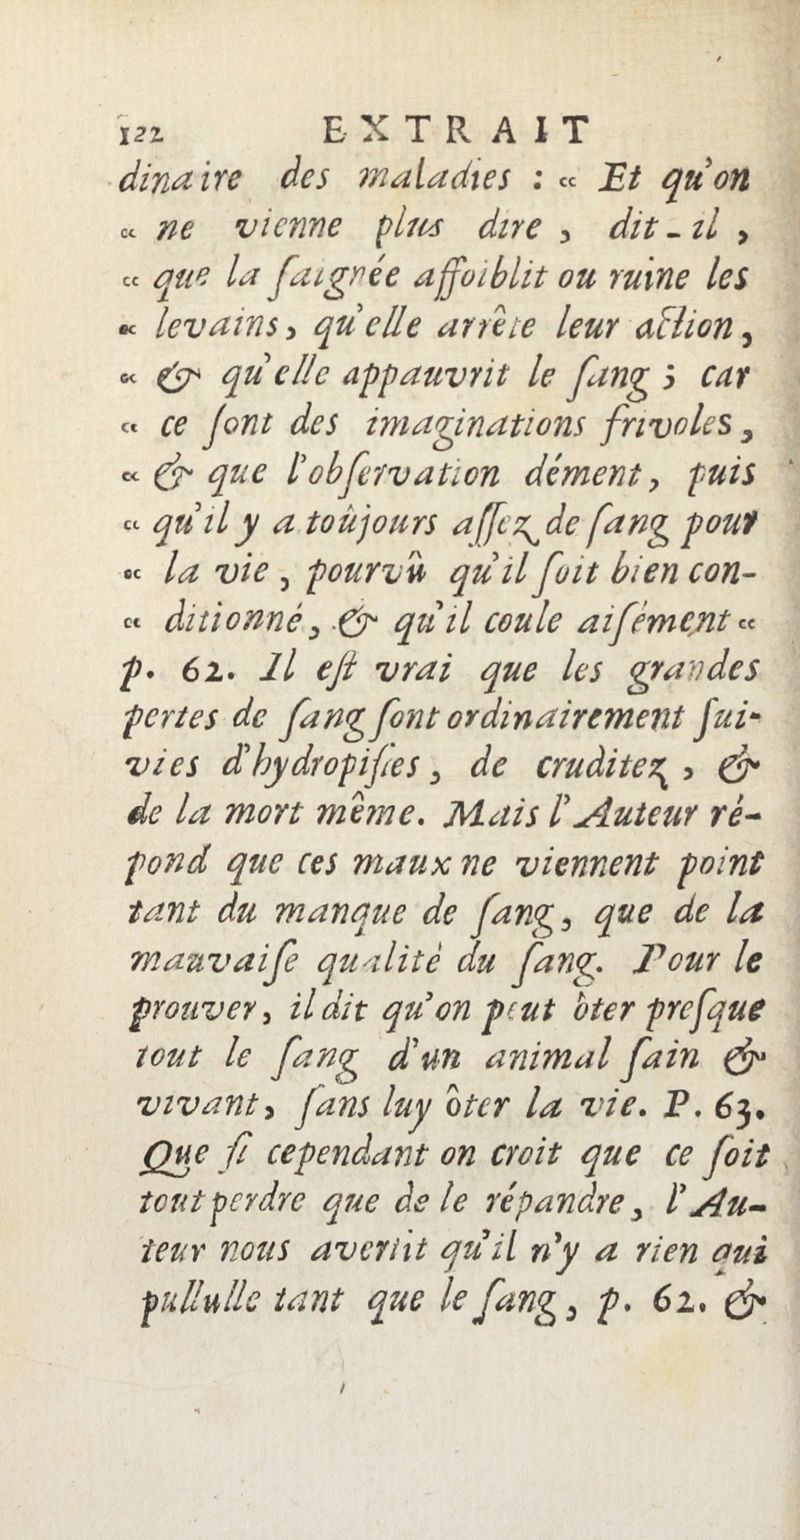 122 EXTRAIT
dinaire des maladies : « Et qu'on
« ne vienne plus dire, dit-il,
« que la ſaignée affoiblit ou ruine les
« levains, qu'elle arrête leur action,
« & qu'elle appauvrit le ſang ; car
« ce ſont des imaginations frivoles,
« & que l'obſervation dément, puis
« qu'il y a toûjours aſſez de ſang pour
« la vie, pourvû qu'il ſoit bien con-
« ditionné, & qu'il coule aiſément «
p. 62. Il eſt vrai que les grandes
pertes de ſang ſont ordinairement ſui-
vies d'hydropiſies, de cruditez, &
de la mort même. Mais l'Auteur ré-
pond que ces maux ne viennent point
tant du manque de ſang, que de la
mauvaiſe qualité du ſang. Pour le
prouver, il dit qu'on peut ôter preſque
tout le ſang d'un animal ſain &
vivant, ſans luy ôter la vie. P. 63.
Que ſi cependant on croit que ce ſoit
tout perdre que de le répandre, l'Au-
teur nous avertit qu'il n'y a rien qui
pullulle tant que le ſang, p. 62. &